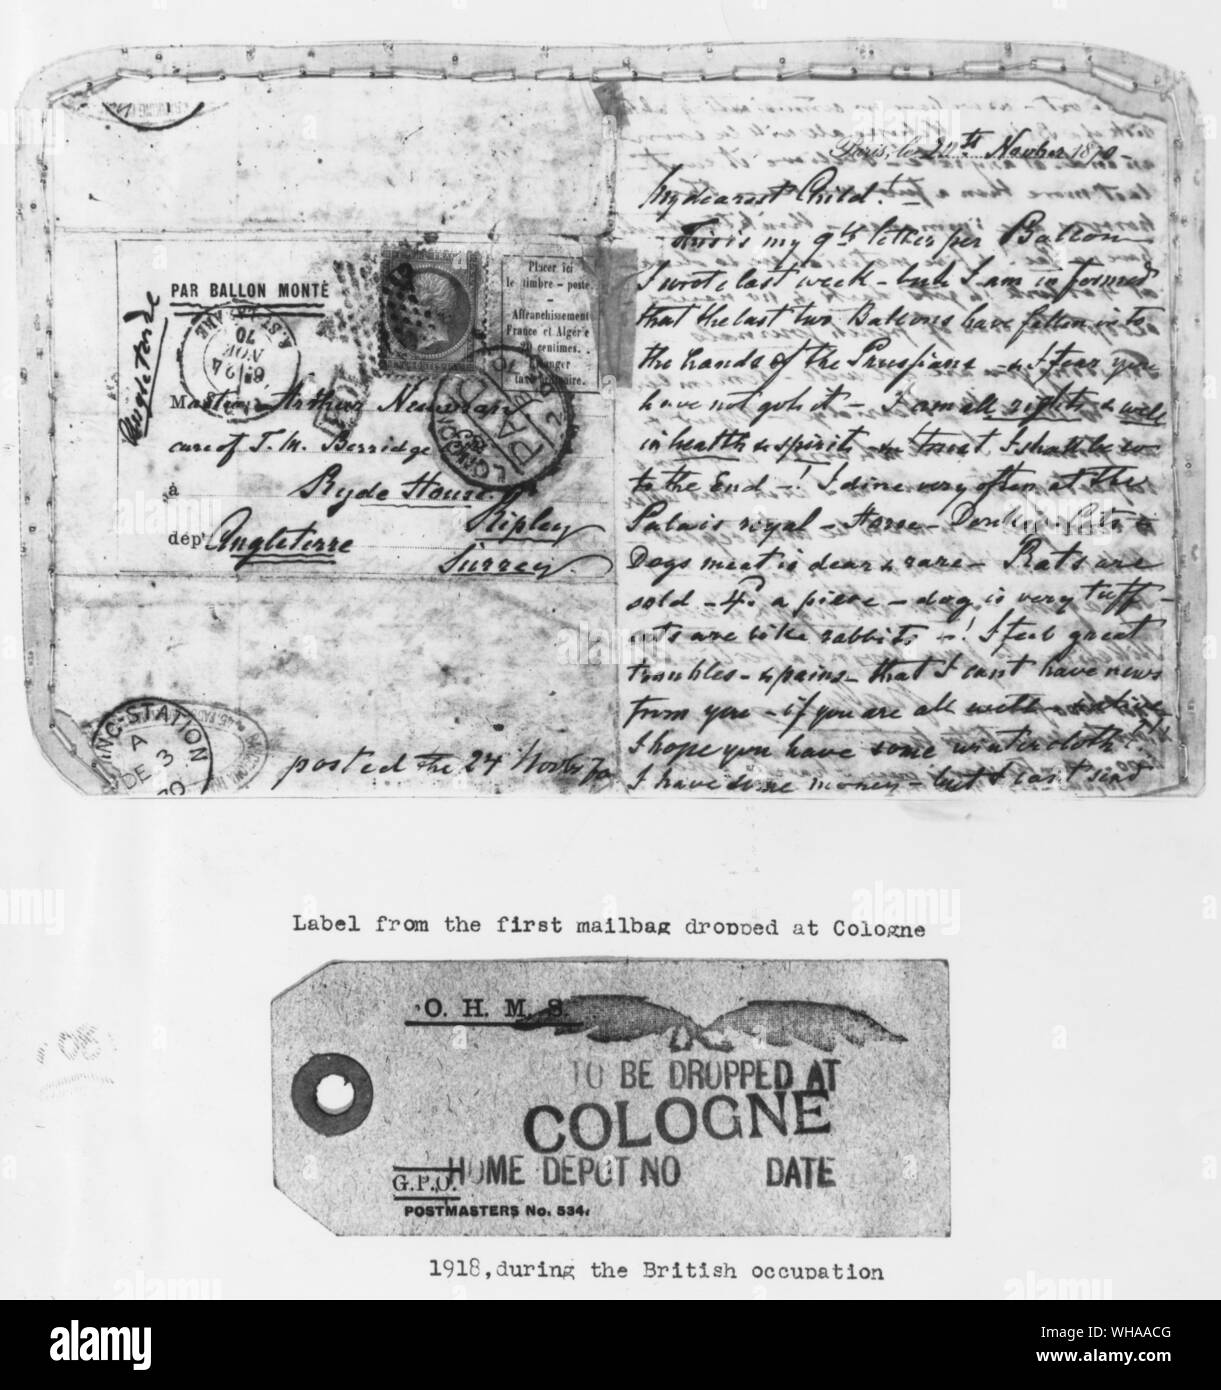 PAR BALLON MONTÉ
Angleterre
Placer ici
le timbre-poste.
Affranchissement
France et Algérie
20 centimes.
Etranger
taxe ordinaire.
Master Arthur
care of T. M. Berridge
à Ryde House.
Ripley
dépt Angleterre
Surrey.
LONDON
PAID
ING-STATION
A
DE 3
70
posted the 24 Novbr 70
Paris, le Novber 1870
My dearest Child.
This is my 9th letter per Balloon
I wrote last week - but I am informed
that the last two Balloons have fallen into
the hands of the Prussians - & I fear you
have not got it - I am all right & well
in health & spirits & trust I shall be so
to the End -! I dine very often at the
Palais royal - Horse - Donkey
Dogs meat is dear & rare - Rats are
sold - a piece - dog is very tuff -
cats are like rabbits -! I feel great
troubles - & pains - that I cant have news
from you - if you are all well
I hope you have some winter cloth
I have some money - but I cant send
Label from the first mailbag dropped at Cologne
O. H. M. S.
TO BE DROPPED AT
COLOGNE
HOME DEPOT NO DATE
G.P.O.
POSTMASTERS No. 534.
1918, during the British occupation
alamy
Image ID: WHAACG
www.alamy.com